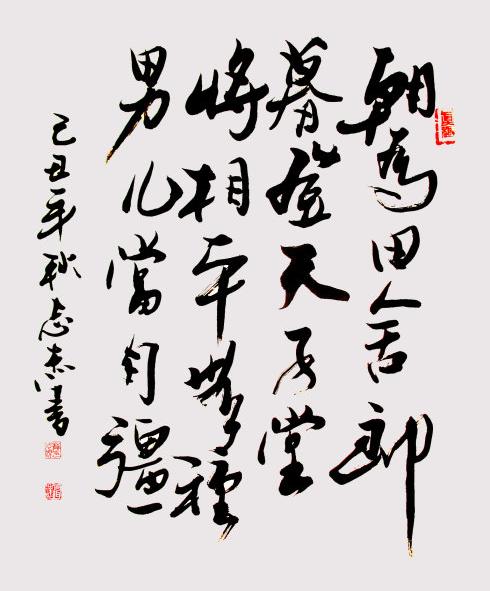 朝為田舍郎
暮登天子堂
將相本無種
男儿當自彊
己丑年秋志杰書